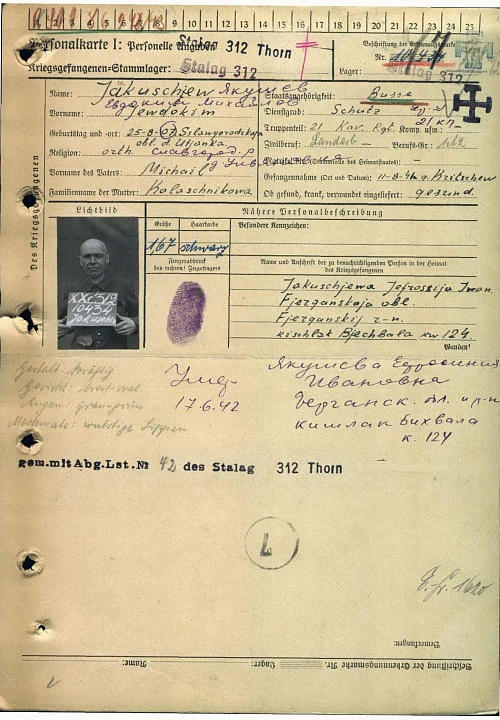 1 2 3 4 5 6 7 8 9 10 11 12 13 14 15 16 17 18 19 20 21 22 23 24 25
Personalkarte I: Personelle Angaben
Stalag 312 Thorn
Kriegsgefangenen-Stammlager:
Stalag 312
Beschriftung der Erkennungsmarke
Nr. 10434
Lager: Stalag 312
Des Kriegsgefangenen
Name: Jakuschjew Якушев
Евдоким Михайлов
Vorname: Jewdokim
Geburtstag und -ort: 25-8-07 Slawgorodskaja
obl. d. Usjonka
Religion: orth.
Vorname des Vaters: Michail
Familienname der Mutter: Kalaschnikowa
Staatsangehörigkeit: Russe
Dienstgrad: Schütz
Truppenteil: 21 Kav. Rgt. Komp. usw.:
21 кп
Zivilberuf: Landarb. Berufs-Gr.:
Gefangennahme (Ort und Datum): 11-8-41 g. Kritschew
Ob gesund, krank, verwundet eingeliefert: gesund.
Lichtbild
XXC 312
10434
Jakusch
Nähere Personalbeschreibung
Größe Haarfarbe Besondere Kennzeichen:
1/67 schwarz
Fingerabdruck
des rechten! Zeigefingers
Name und Anschrift der zu benachrichtigenden Person in der Heimat
des Kriegsgefangenen
Jakuschjewa Jefrossija Iwan.
Fjerganskaja obl.
Fjerganskij r-n.
kischlak Bjechbala kw 124.
Wenden!
Gestalt: kräftig
Gesicht: breit-oval
Augen: grau-grün
Merkmale: wulstige Lippen
Умер
17.6.42
Якушева Ефросиния
Ивановна
Ферганск. обл. и р-н
кишлак Бихбала
к. 124
gem. mit Abg. Lst. Nr 42 des Stalag 312 Thorn
Bemerkungen:
Beschriftung der Erkennungsmarke Nr. Lager: Name: